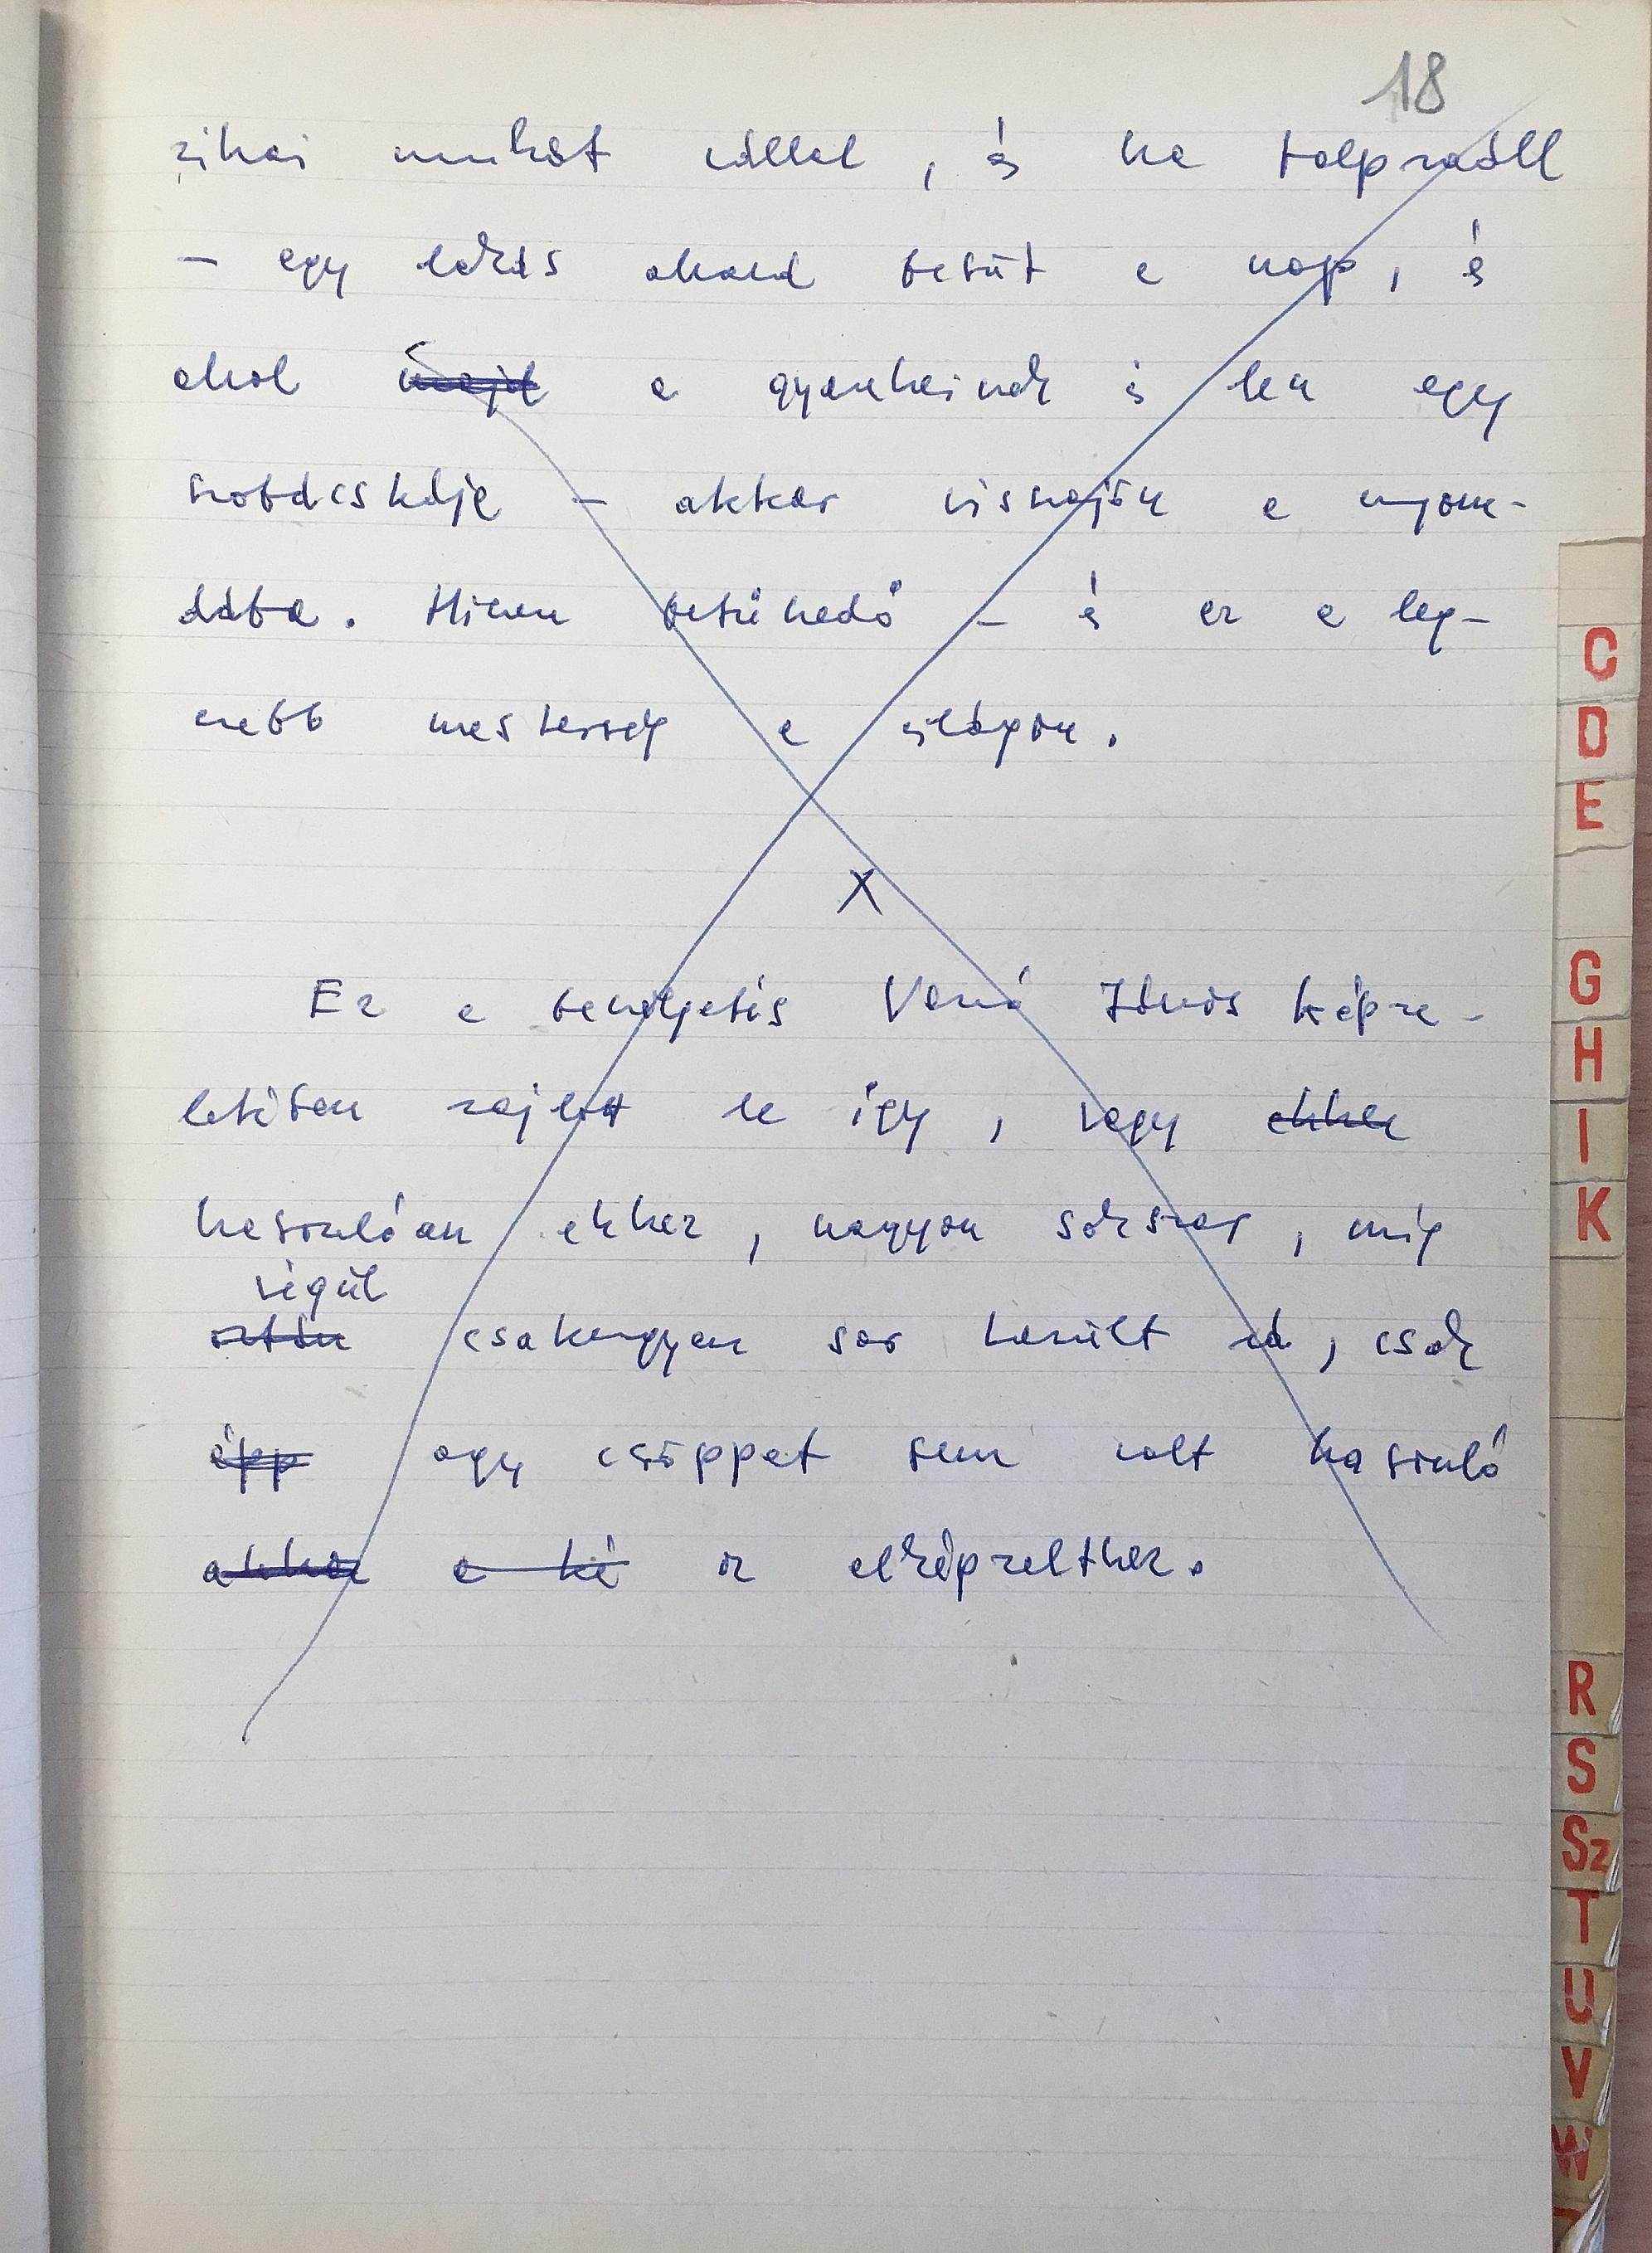 18
zikai munkát vállal, és ha talpraáll
– egy lakás ahová besüt a nap, és
ahol majd a gyerekeinek is lesz egy
szobácskája – akkor visszajön a nyom-
dába. Hiszen betűszedő – és ez a leg-
szebb mesterség a világon.
X
Ez a beszélgetés Vanó János képze-
letében zajlott le így, vagy ehhez
hasonlóan ehhez, nagyon sokszor, míg
végül
aztán csakugyan sor került rá, csak
épp egy csöppet sem volt hasonló
ahhoz a ké az elképzelthez.
C
D
E
G
H
I
K
R
S
Sz
T
U
V
W